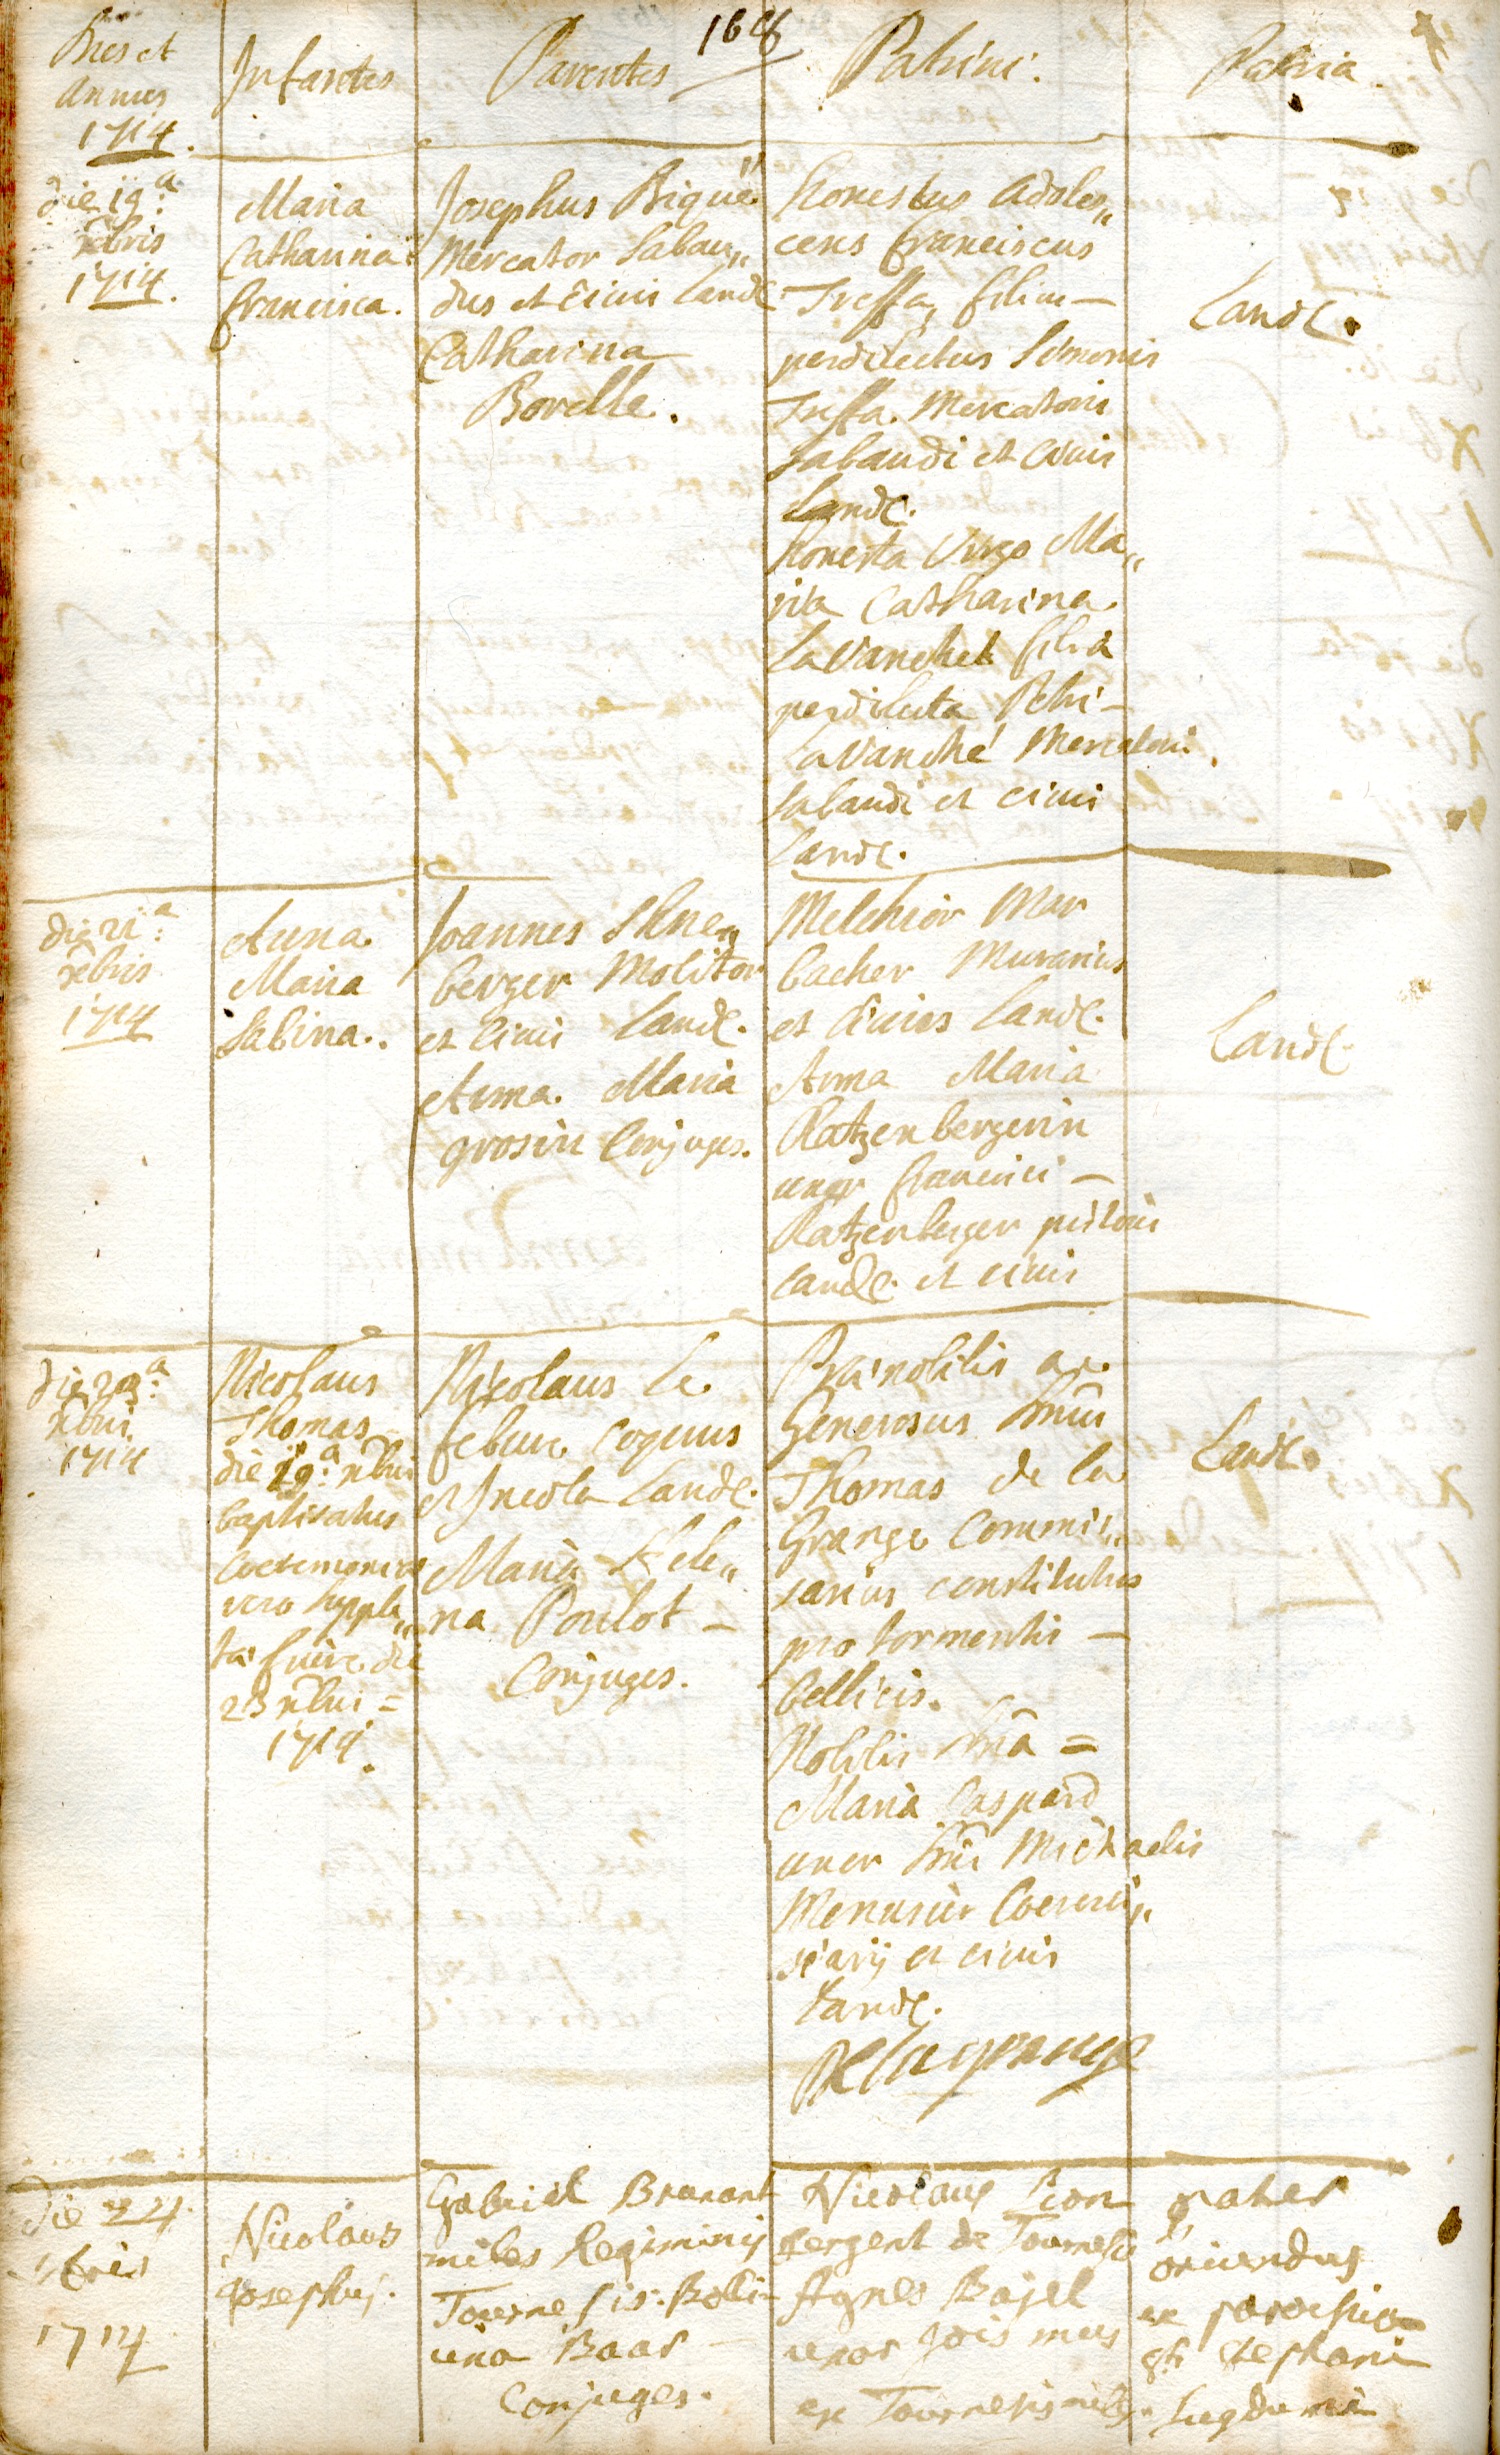 168
Dies et
Annus
1714.
Infantes
Parentes
Patrini.
Patria
die 19.a
xbris
1714.
Maria
Catharina
francisca.
Josephus Biqué
Mercator Sabau„
dus et civis Land.
Catharina
Borelle.
honestus adoles„
cens franciscus
Treffa, filius —
perdilectus Simonis
Treffa Mercatoris
Sabaudi et civis
Land.
honesta virgo Ma„
ria Catharina
Lavanchet filia
perdilecta Petri —
Lavanché Mercatoris
Sabaudi et civis
Land.
Land.
die 21.a
xbris
1714
Anna
Maria
Sabina.
Joannes Shne„
berger Molitor
et Civis Land.
Anna Maria
grosin Conjuges.
Melchior Mar
bacher Murarius
et Civis Land.
Anna Maria
Ratzenbergerin
uxor francisci —
Ratzenberger pistoris
Land. et civis
Land.
xbris
1714
Nicolaus
Thomas
die 19.a xbris
baptisatus
Coeremoniae
vero supple„
tae fuere die
23 xbris =
1714.
Nicolaus le
febure coquus
et Incola Land.
Maria Hele„
na Poulot —
Conjuges.
Praenobilis ac
Generosus Dnus
Thomas de la
Grange Commis„
sarius constitutus
pro tormentis —
bellicis.
Nobilis Dna =
Maria Caspard
uxor Dni Michaelis
Menusier
et civis
Land.
Delagrange
Land.
die 24
xbris
1714
Nicolaus
Josephus.
Gabriel Bramant
miles Regiminis
Tournesis.
Baar —
Conjuges.
Nicolaus Lion
sergent de Tournesis
Agnes Bajel
uxor
ex Tournesis
pater
oriundus
ex parochia
sti stephani
Lugduni